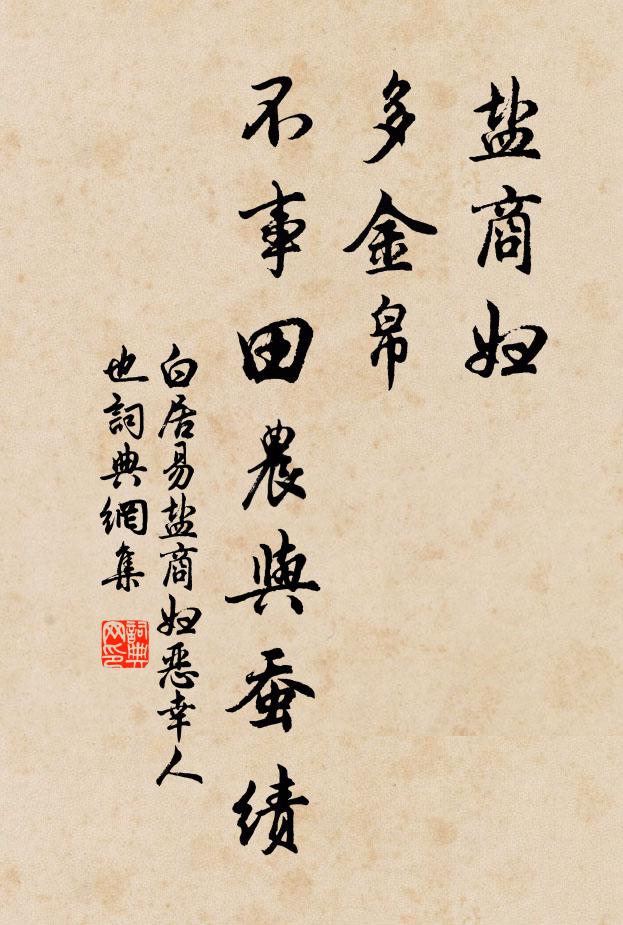 盐商妇
多金帛
不事田農與蚕绩
白居易盐商妇恶幸人
也詞典網集
詞典
网印